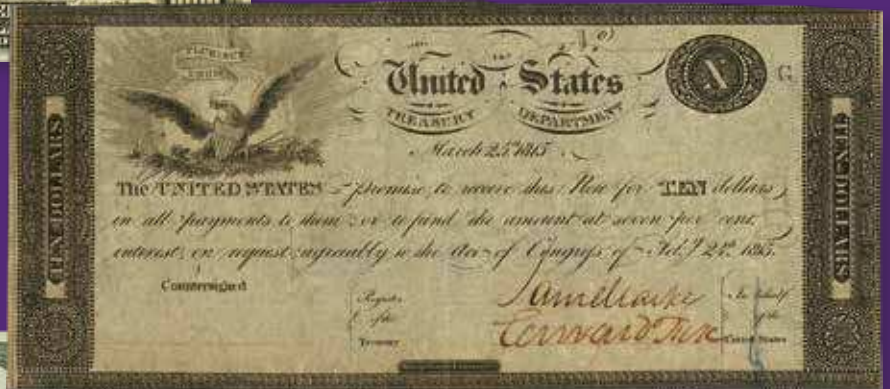 E PLURIBUS
UNUM
United States
TREASURY DEPARTMENT
X
G
March 25th 1815
The UNITED STATES promise to receive this Note for TEN dollars
in all payments to them; or to fund the amount at seven per cent
interest, on request, agreeably to the Act of Congress of Feb.y 24th 1815.
Countersigned
Register
of the
Treasury
In behalf
of the
United States
TEN DOLLARS
TEN DOLLARS